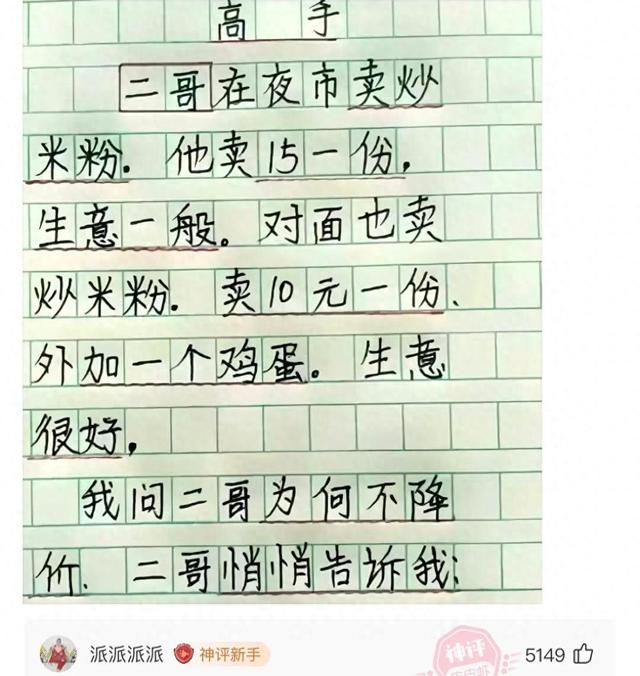 高 手
二哥在夜市卖炒
米粉. 他卖15一份,
生意一般。对面也卖
炒米粉. 卖10元一份、
外加一个鸡蛋。生意
很好,
我问二哥为何不降
价. 二哥悄悄告诉我:
派派派派 神评新手 神评 5149
皮皮虾